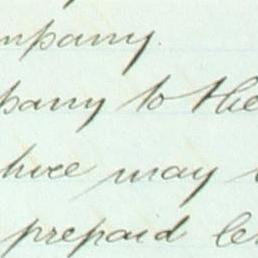 mpany.
pany to the
hive may
prepaid le